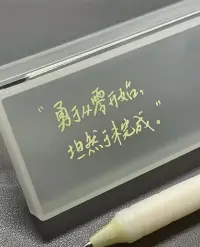 “勇于从零开始，
坦然于未完成。”